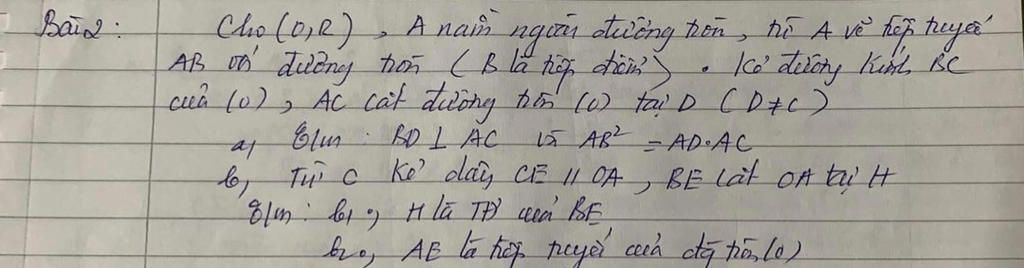 Bài 2: Cho (O,R), A nằm ngoài đường tròn, từ A vẽ tiếp tuyến
AB với đường tròn (B là tiếp điểm). Kẻ đường kính BC
của (O), AC cắt đường tròn (O) tại D (D≠C)
a, C/m: BD⊥AC và AB² = AD·AC
b, Từ C kẻ dây CE // OA, BE cắt OA tại H
C/m: b1, H là TĐ của BE
b2, AE là tiếp tuyến của đg tròn (O)